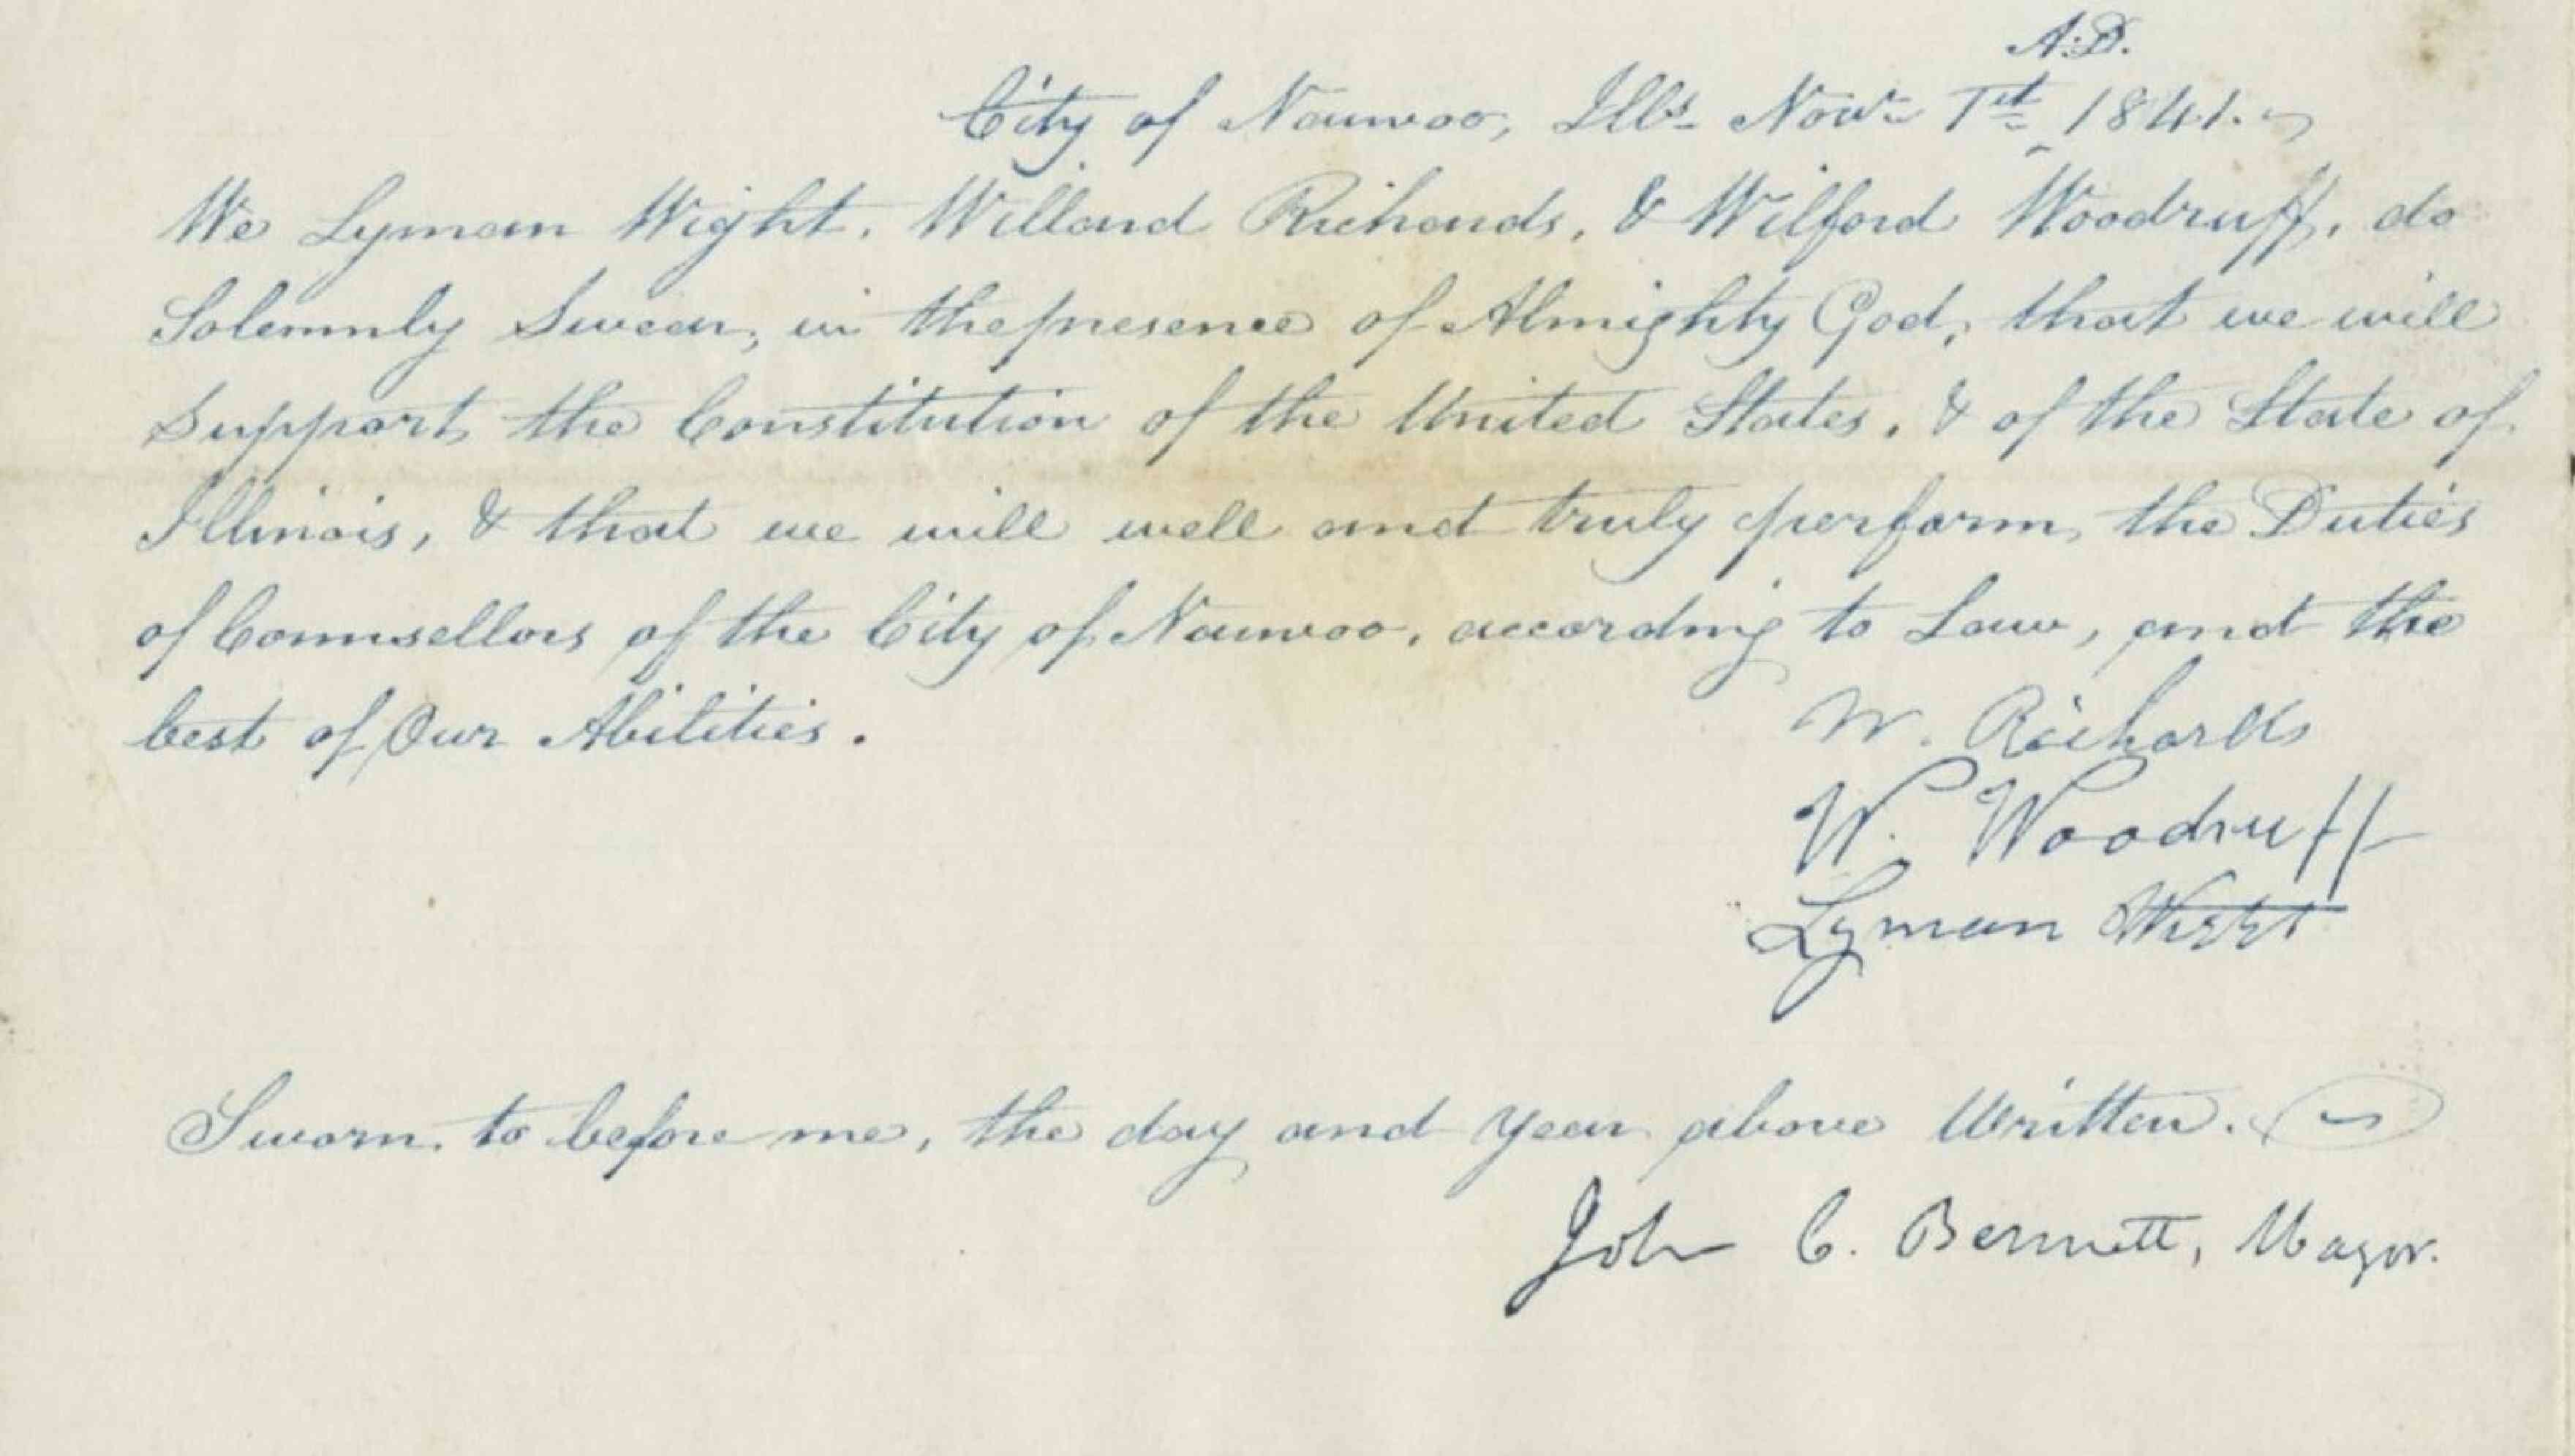 A.D.
City of Nauvoo, Ills. Nov. 1st 1841.
We Lyman Wight, Willard Richards, & Wilford Woodruff, do
Solemnly Swear, in the presence of Almighty God, that we will
Support the Constitution of the United States, & of the State of
Illinois, & that we will well and truly perform, the Duties
of Counsellors of the City of Nauvoo, according to Law, and the
best of Our Abilities.
W. Richards
W. Woodruff
Lyman Wight
Sworn to before me, the day and year above Written.
John C. Bennett, Mayor.